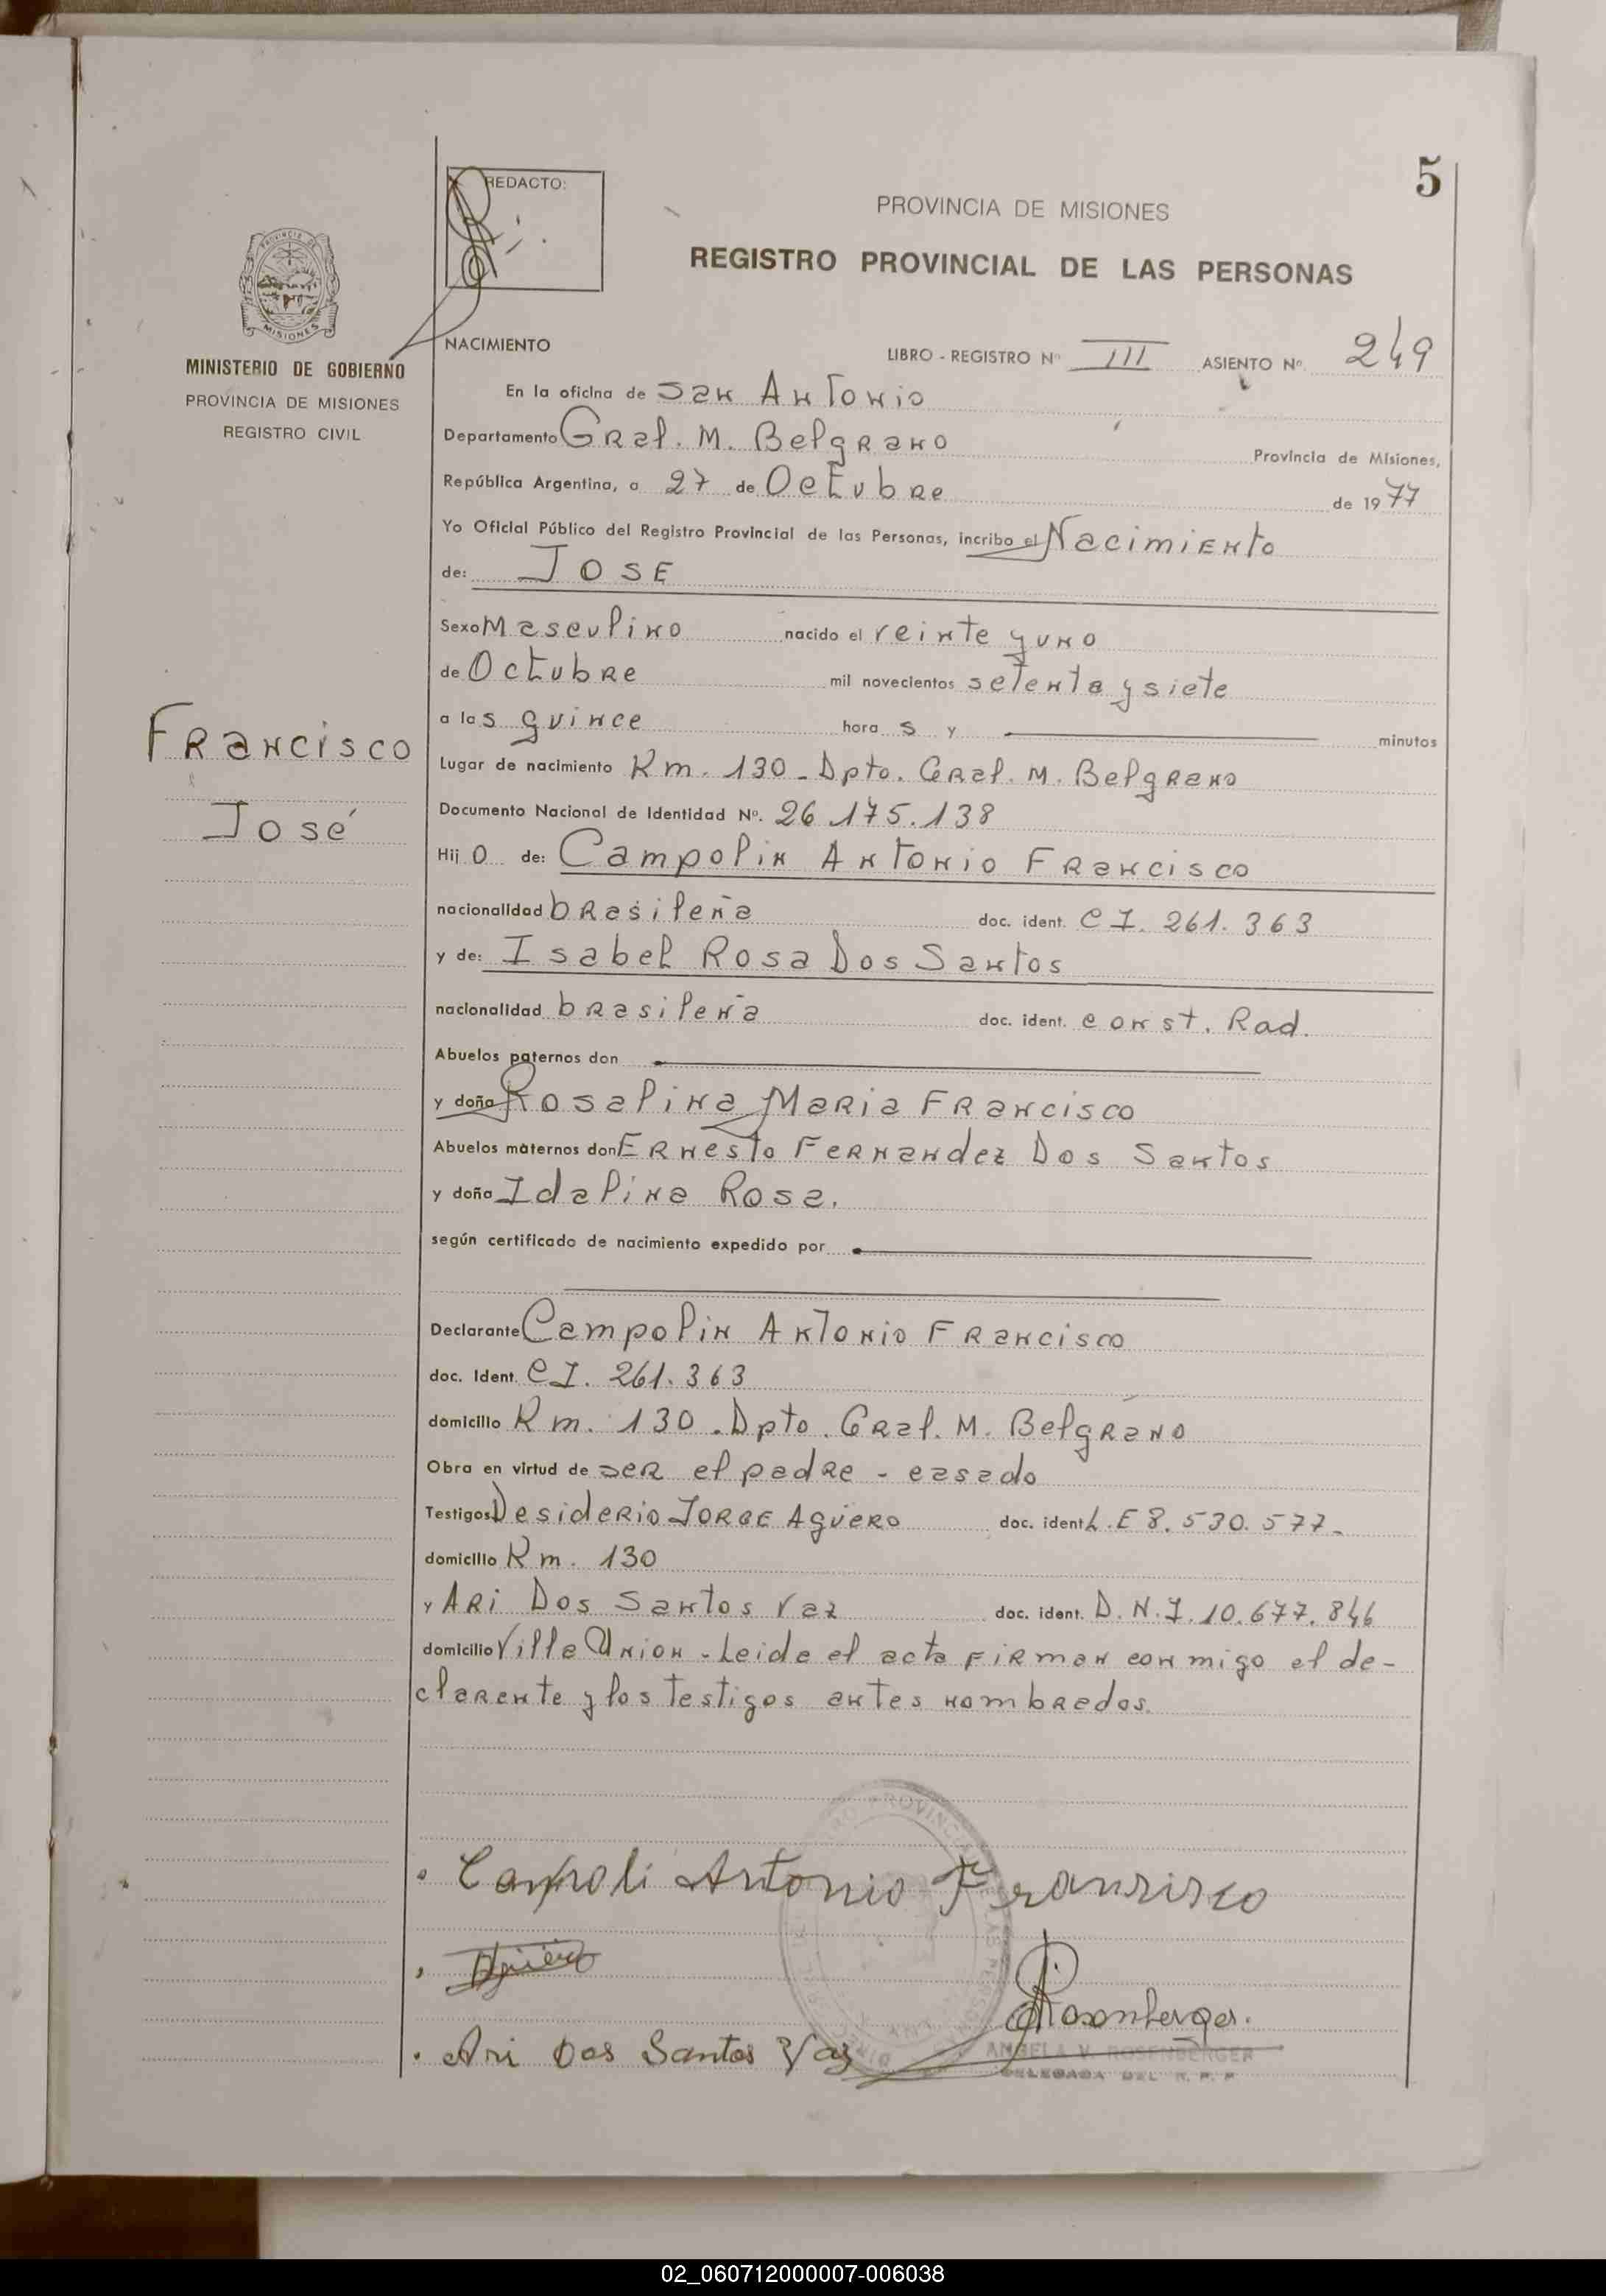 5
REDACTO:
PROVINCIA DE MISIONES
REGISTRO PROVINCIAL DE LAS PERSONAS
PROVINCIA DE
MISIONES
MINISTERIO DE GOBIERNO
PROVINCIA DE MISIONES
REGISTRO CIVIL
NACIMIENTO
LIBRO - REGISTRO Nº III ASIENTO Nº 249
En la oficina de San Antonio
Departamento Gral. M. Belgrano Provincia de Misiones,
República Argentina, a 27 de Octubre de 1977
Yo Oficial Público del Registro Provincial de las Personas, incribo el Nacimiento
de: JOSE
Sexo Masculino nacido el veinte y uno
de Octubre mil novecientos setenta y siete
a las quince hora s y minutos
Francisco
José
Lugar de nacimiento Km. 130 - Dpto. Gral. M. Belgrano
Documento Nacional de Identidad Nº. 26.175.138
Hij o de: Campolin Antonio Francisco
nacionalidad brasileña doc. ident. C I. 261.363
y de: Isabel Rosa Dos Santos
nacionalidad brasileña doc. ident. const. Rad.
Abuelos paternos don
y doña Rosalina Maria Francisco
Abuelos maternos don Ernesto Fernandez Dos Santos
y doña Idalina Rosa.
según certificado de nacimiento expedido por
Declarante Campolin Antonio Francisco
doc. Ident. C I. 261.363
domicilio Km. 130 . Dpto. Gral. M. Belgrano
Obra en virtud de ser el padre - casado
Testigos Desiderio Jorge Agüero doc. ident L.E 8.530.577-
domicilio Km. 130
y Ari Dos Santos Vaz doc. ident. D.N.I. 10.677.846
domicilio Villa Union - Leida el acta firman conmigo el de-
clarante y los testigos antes nombrados.
Campoli Antonio Fransisco
Agüero
Rosenberger.
Ari Dos Santos Vaz
ANGELA V. ROSENBERGER
DELEGADA DEL R. P. P
02_060712000007-006038